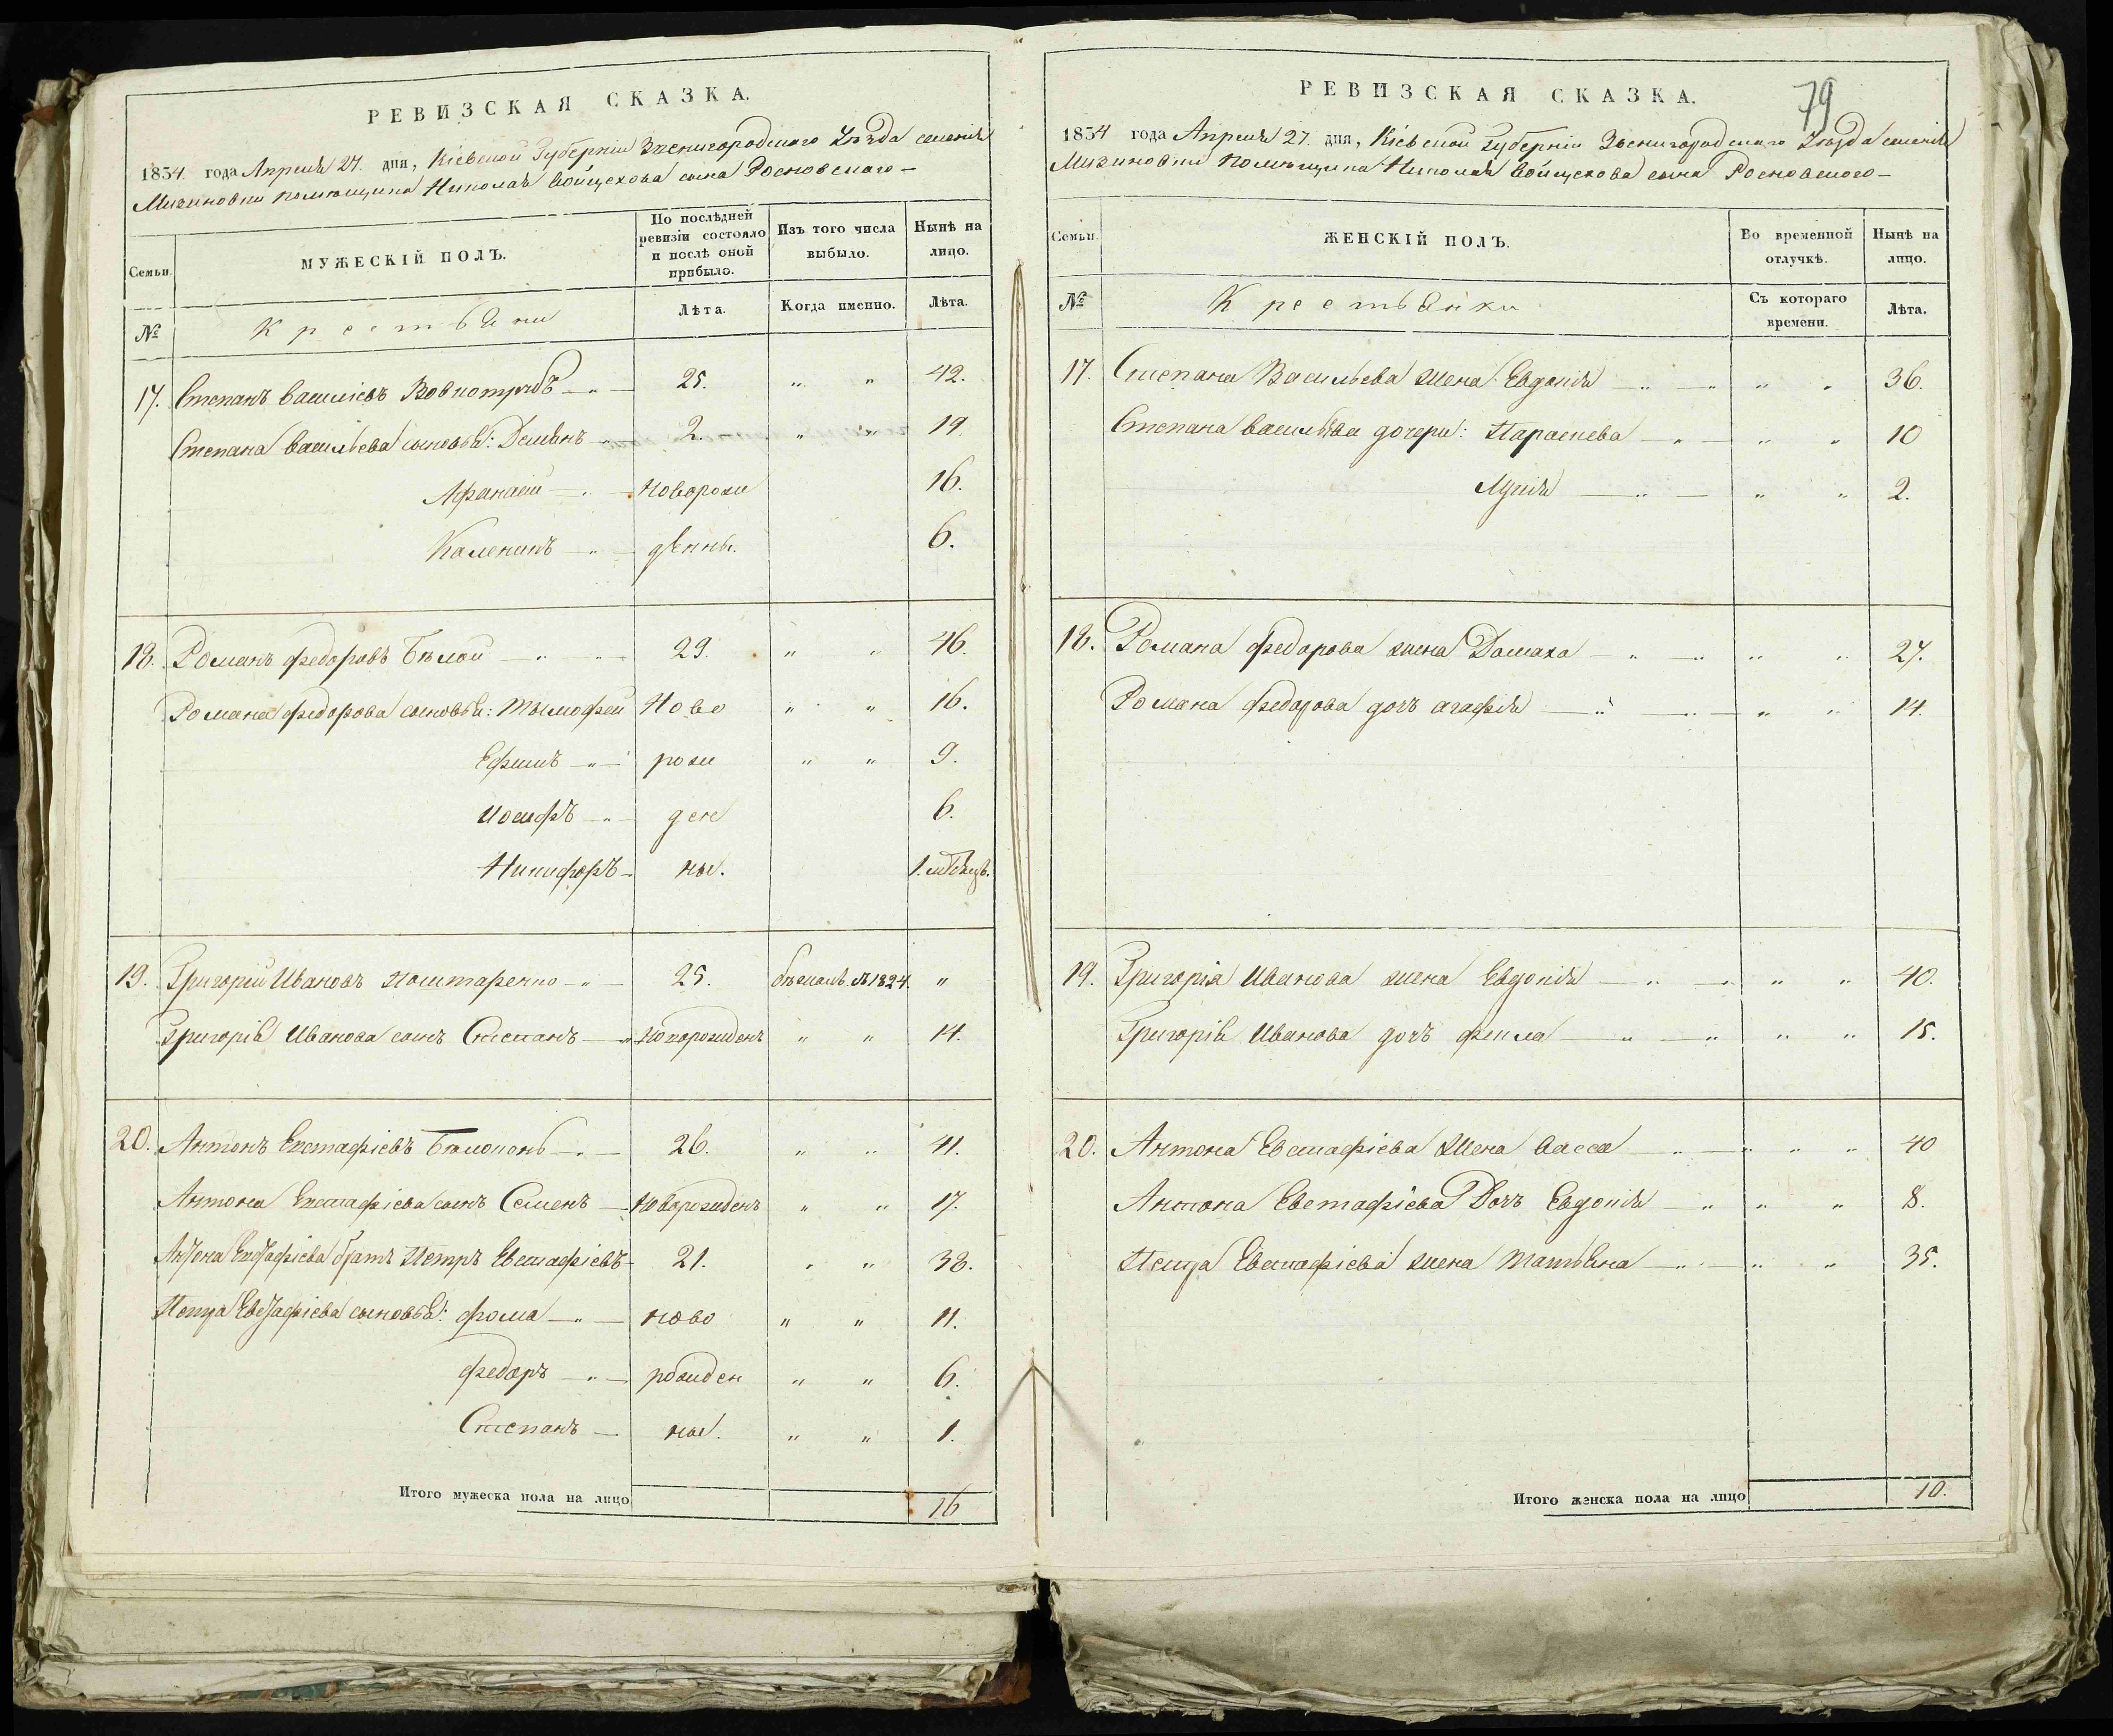 РЕВИЗСКАЯ СКАЗКА.
1834 года Апреля 27. дня, Кіевской Губерніи Звенигородского Уезда селенія
Мизиновки помѣщика Николая Войцехова сына Росновского
Семьи. МУЖЕСКІЙ ПОЛЪ. По послѣдней ревизіи состояло и послѣ оной прибыло. Изъ того числа выбыло. Нынѣ на лицо.
№ Крестьяни Лѣта. Когда именно. Лѣта.
17. Степанъ Василіевъ 25. " " 42.
Степана Васильева сыновья: Демьянъ 2. " " 19
Афанасій Новорожи 16.
Каленикъ денны. 6.
18. Романъ Федоровъ Бѣлой 29. " " 46.
Романа Федорова сыновья: Тымофей Ново " " 16.
Ефимъ рожи " " 9.
Иосифъ ден 6.
Никифоръ ные. 1. мѣсяцъ.
19. Григорій Ивановъ Поштаренко 25. бѣжалъ в 1824. "
Григорія Иванова сынъ Степанъ Новорожденъ " " 14.
20. Антонъ Евстафіевъ Бѣлоконь 26. " " 41.
Антона Евстафіева сынъ Семенъ Новорожденъ " " 17.
Антона Евстафіева братъ Петръ Евстафіевъ 21. " " 38.
Петра Евстафіева сыновья: Фома ново " " 11.
Федоръ рожден " " 6.
Степанъ ные. " " 1.
Итого мужеска пола на лицо 16
79
РЕВИЗСКАЯ СКАЗКА.
1834 года Апреля 27. дня, Кіевской Губерніи Звенигородского Уезда селенія
Мизиновки помѣщика Николая Войцехова сына Росновского
Семьи. ЖЕНСКІЙ ПОЛЪ. Во временной отлучкѣ. Нынѣ на лицо.
№ Крестьянки Съ котораго времени. Лѣта.
17. Степана Васильева жена Евдокія " " 36.
Степана Васильева дочери: Параскева " " 10
Лукія " " 2.
18. Романа Федорова жена Домаха " " 27.
Романа Федорова дочь агафія " " 14.
19. Григорія Иванова жена Евдокія " " 40.
Григорія Иванова дочь фекла " " 15.
20. Антона Евстафіева жена Васса " " 40
Антона Евстафіева Дочь Евдокія " " 8.
Петра Евстафіева жена Татьяна " " 35.
Итого женска пола на лицо 10.